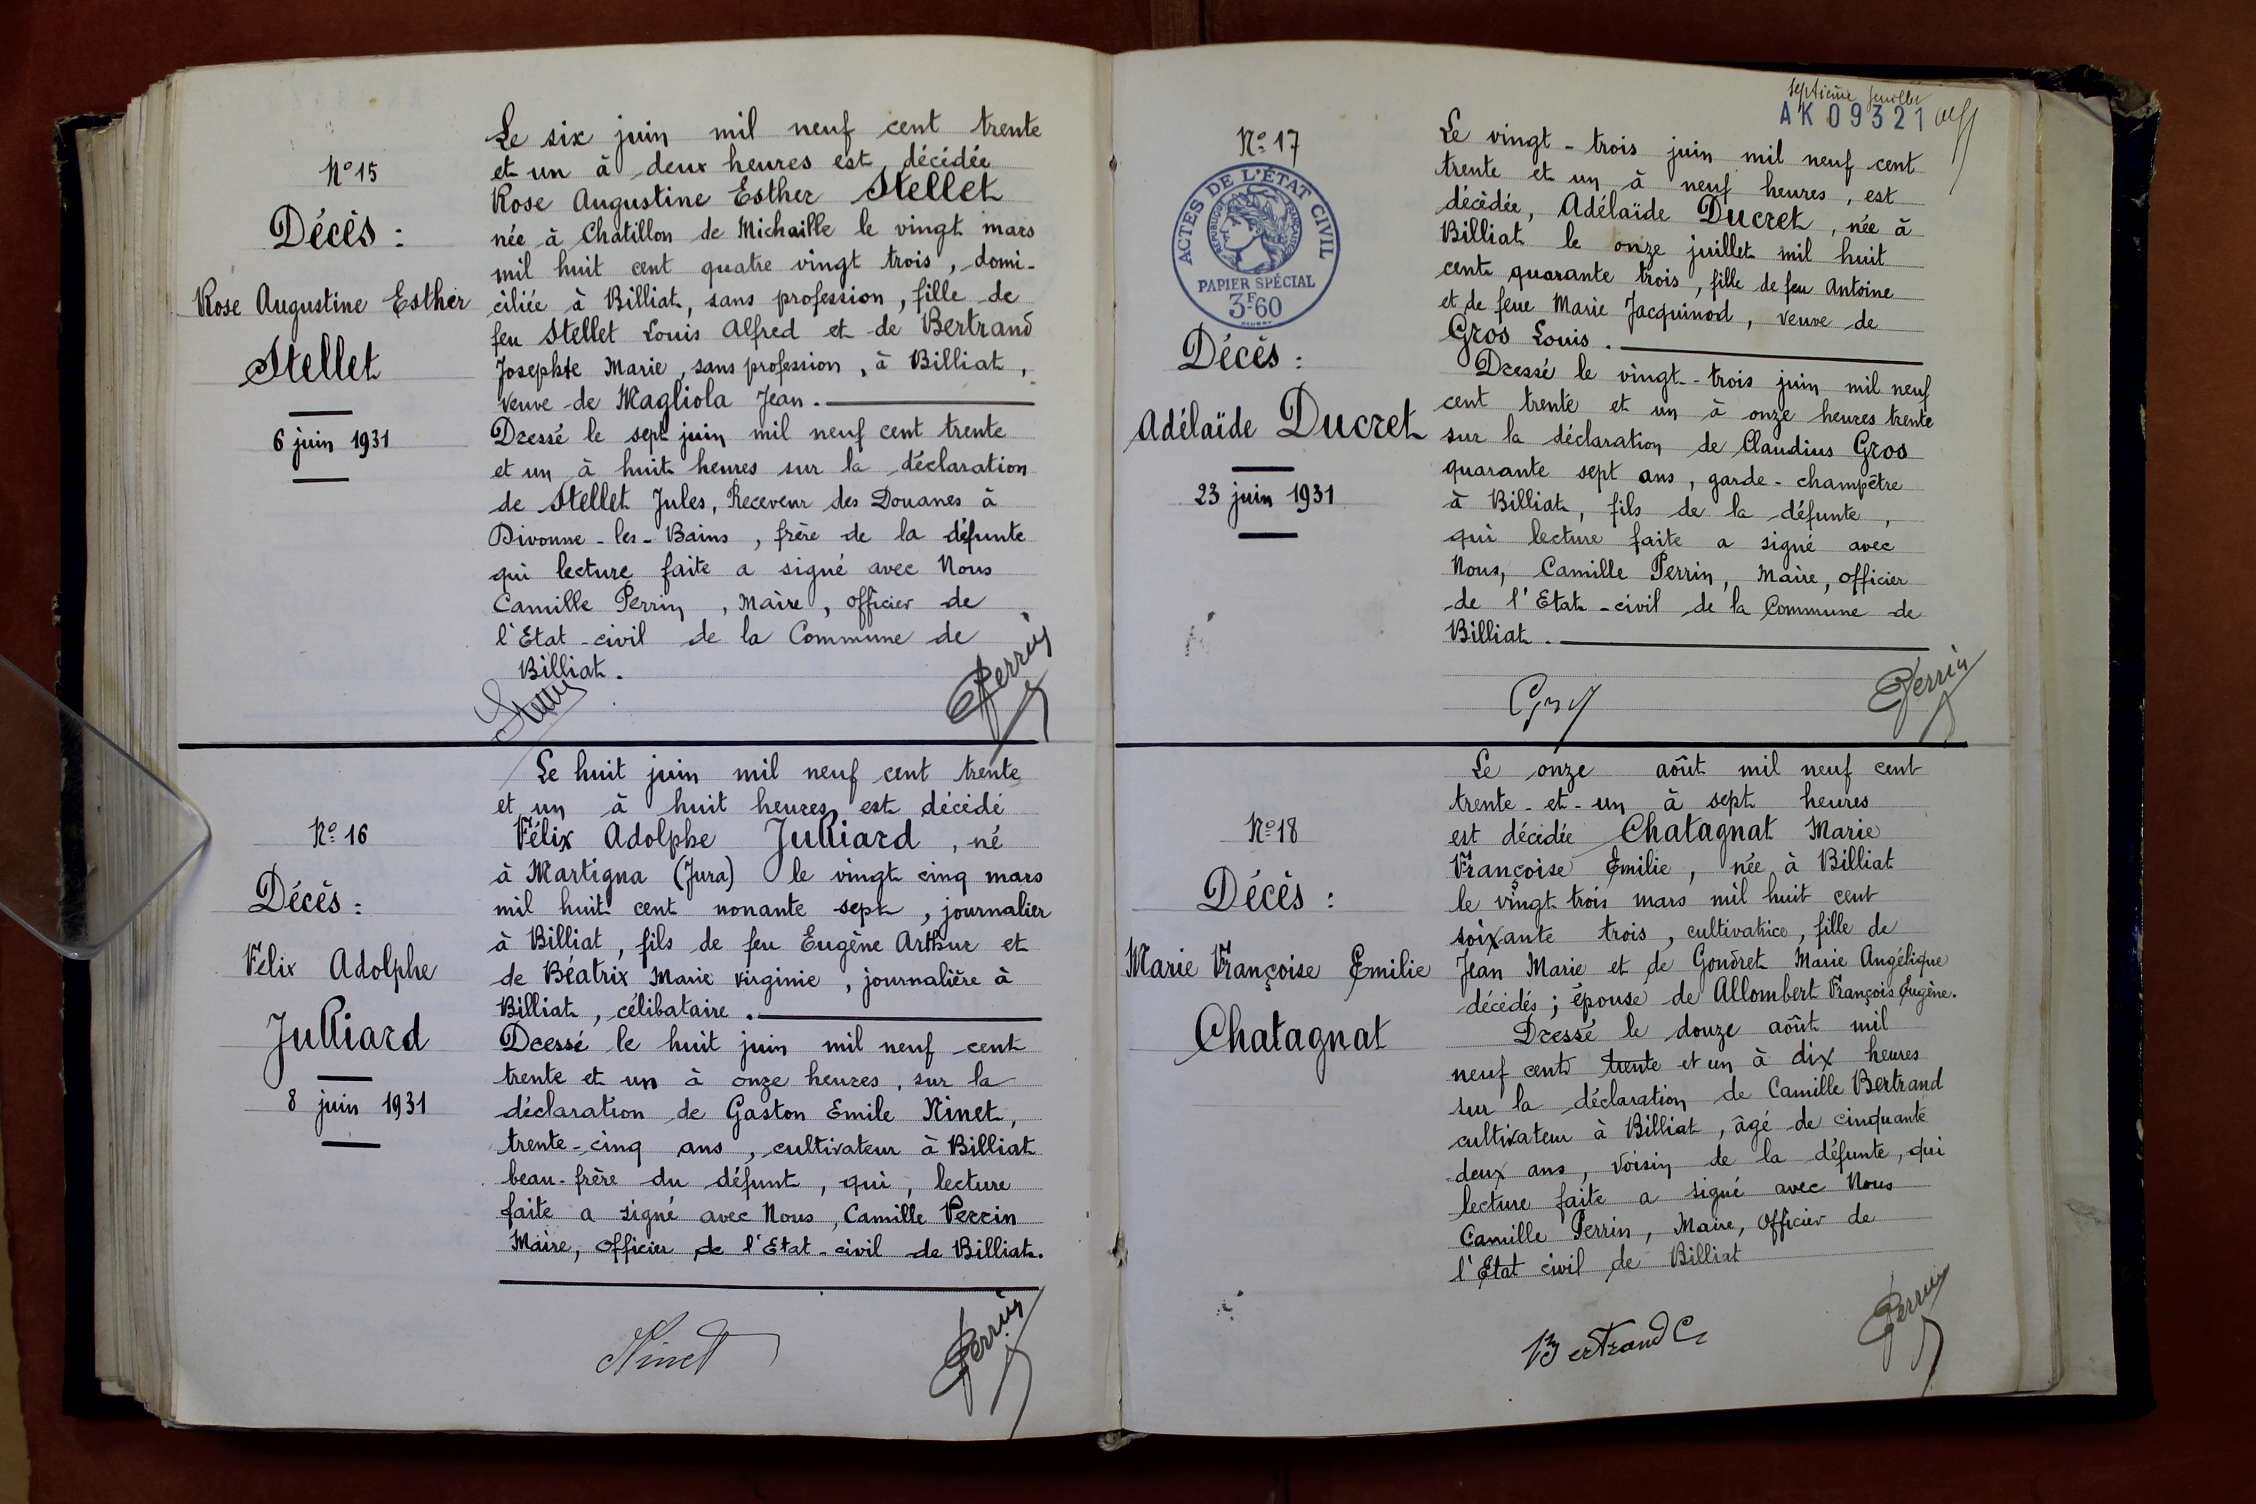 N° 15
Décès :
Rose Augustine Esther
Stellet
6 juin 1931
Le six juin mil neuf cent trente
et un à deux heures est décédée
Rose Augustine Esther Stellet
née à Chatillon de Michaille le vingt mars
mil huit cent quatre vingt trois, domi-
ciliée à Billiat, sans profession, fille de
feu Stellet Louis Alfred et de Bertrand
Josephte Marie, sans profession, à Billiat,
veuve de Magliola Jean.
Dressé le sept juin mil neuf cent trente
et un à huit heures sur la déclaration
de Stellet Jules, Receveur des Douanes à
Divonne-les-Bains, frère de la défunte
qui lecture faite a signé avec Nous
Camille Perrin, Maire, officier de
l'Etat-civil de la Commune de
Billiat.
Perrin
N° 16
Décès :
Félix Adolphe
Julliard
8 juin 1931
Le huit juin mil neuf cent trente
et un à huit heures est décédé
Félix Adolphe Julliard, né
à Martigna (Jura) le vingt cinq mars
mil huit cent nonante sept, journalier
à Billiat, fils de feu Eugène Arthur et
de Béatrix Marie Virginie, journalière à
Billiat, célibataire.
Dressé le huit juin mil neuf cent
trente et un à onze heures, sur la
déclaration de Gaston Emile Ninet,
trente-cinq ans, cultivateur à Billiat
beau-frère du défunt, qui, lecture
faite a signé avec Nous, Camille Perrin
Maire, officier de l'Etat-civil de Billiat.
Ninet
Perrin
septième feuillet
AK 09321
N° 17
ACTES DE L'ÉTAT CIVIL
RÉPUBLIQUE FRANÇAISE
PAPIER SPÉCIAL
3F60
Décès :
Adélaïde Ducret
23 juin 1931
Le vingt-trois juin mil neuf cent
trente et un à neuf heures, est
décédée, Adélaïde Ducret, née à
Billiat le onze juillet mil huit
cent quarante trois, fille de feu Antoine
et de feue Marie Jacquinod, veuve de
Gros Louis.
Dressé le vingt-trois juin mil neuf
cent trente et un à onze heures trente
sur la déclaration de Claudius Gros
quarante sept ans, garde-champêtre
à Billiat, fils de la défunte,
qui lecture faite a signé avec
Nous, Camille Perrin, Maire, officier
de l'Etat-civil de la Commune de
Billiat.
Gros
Perrin
N° 18
Décès :
Marie Françoise Emilie
Chatagnat
Le onze août mil neuf cent
trente-et-un à sept heures
est décédée Chatagnat Marie
Françoise Emilie, née à Billiat
le vingt trois mars mil huit cent
soixante trois, cultivatrice, fille de
Jean Marie et de Gondret Marie Angélique
décédés ; épouse de Allombert François Eugène.
Dressé le douze août mil
neuf cent trente et un à dix heures
sur la déclaration de Camille Bertrand
cultivateur à Billiat, âgé de cinquante
deux ans, voisin de la défunte, qui
lecture faite a signé avec Nous
Camille Perrin, Maire, Officier de
l'Etat civil de Billiat
Bertrand C
Perrin